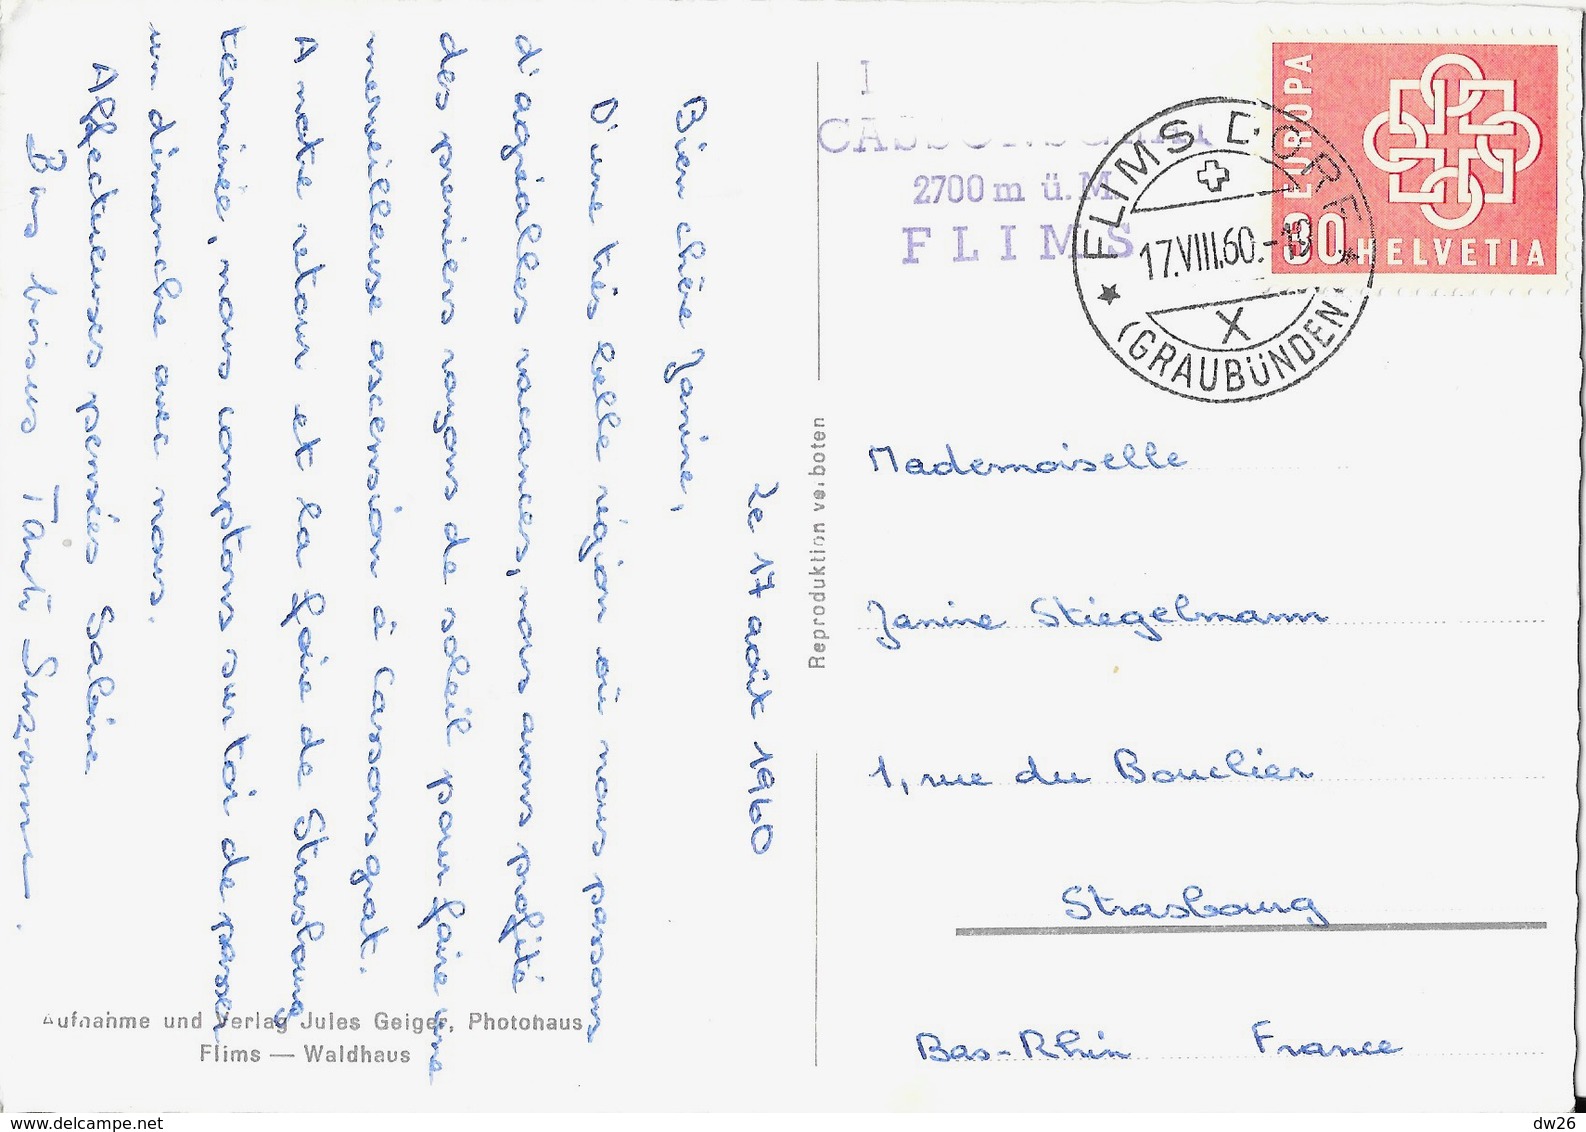 Le 17 août 1960
Bien chère Janine,
D'une très belle région où nous passons
d'agréables vacances, nous avons profité
des premiers rayons de soleil pour faire une
merveilleuse ascension à Cassonsgrat.
A notre retour et la foire de Strasbourg
terminée, nous comptons sur toi de passer
un dimanche avec nous.
Affectueuses pensées
Bons baisers Tante Suzanne.
Aufnahme und Verlag Jules Geiger, Photohaus
Flims — Waldhaus
Reproduktion verboten
I
2700 m ü. M.
FLIMS
FLIMS DORF
17.VIII.60.-18
X
(GRAUBÜNDEN)
EUROPA
30 HELVETIA
Mademoiselle
Janine Stiegelmann
1, rue du Bouclier
Strasbourg
Bas-Rhin France
www.delcampe.net
dw26